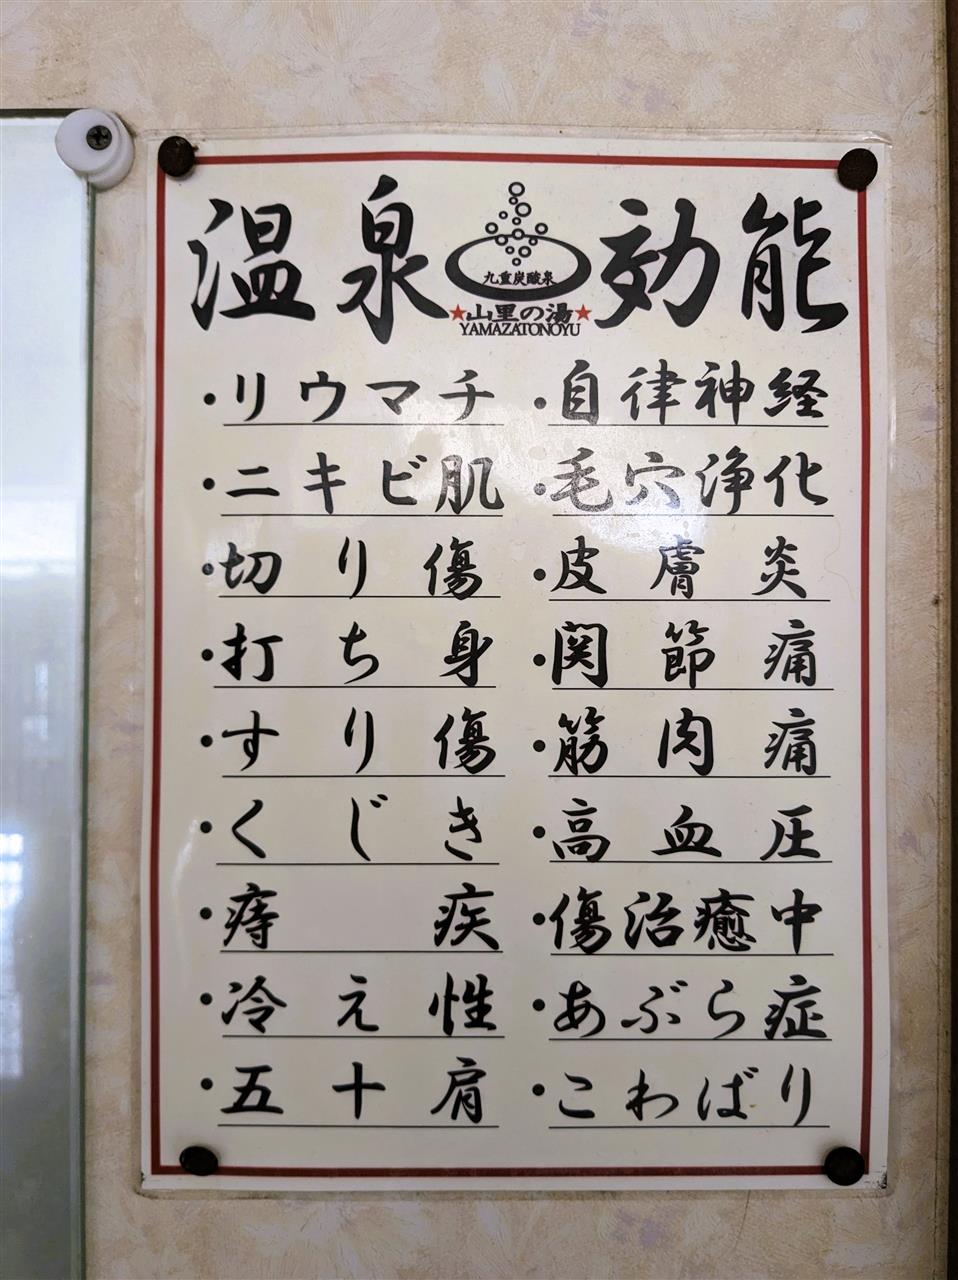 温泉効能
九重炭酸泉
★山里の湯★
YAMAZATONOYU
・リウマチ
・ニキビ肌
・切り傷
・打ち身
・すり傷
・くじき
・痔疾
・冷え性
・五十肩
・自律神経
・毛穴浄化
・皮膚炎
・関節痛
・筋肉痛
・高血圧
・傷治癒中
・あぶら症
・こわばり